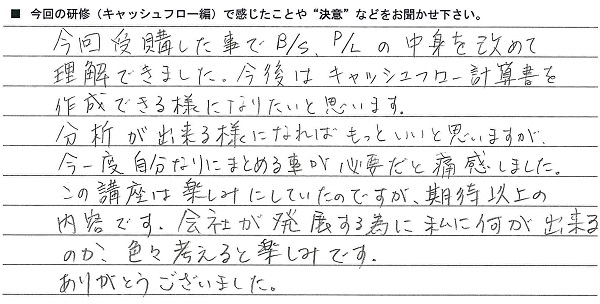 ■ 今回の研修（キャッシュフロー編）で感じたことや“決意”などをお聞かせ下さい。
今回受購した事でB/S、P/Lの中身を改めて
理解できました。今後はキャッシュフロー計算書を
作成できる様になりたいと思います。
分析が出来る様になればもっといいと思いますが、
今一度自分なりにまとめる事が必要だと痛感しました。
この講座は楽しみにしていたのですが、期待以上の
内容です。会社が発展する為に私に何が出来る
のか、色々考えると楽しみです。
ありがとうございました。